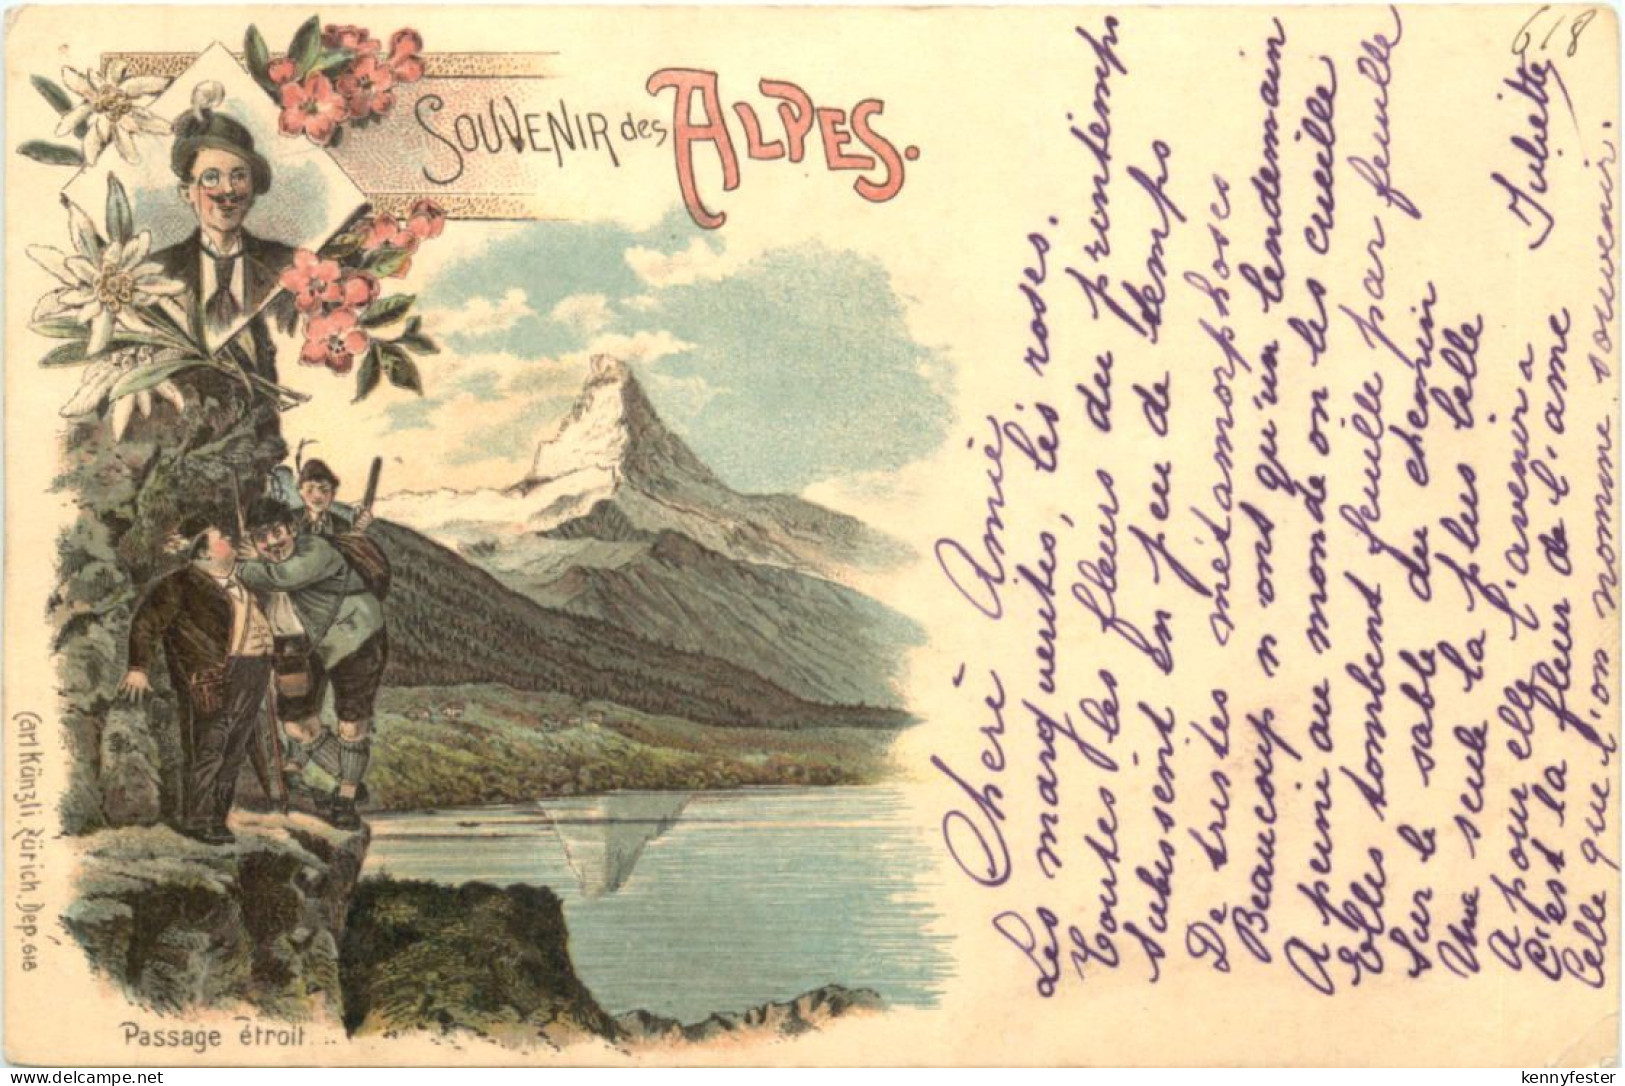 618
SOUVENIR des ALPES.
Carl Künzli, Zürich, Dep. 618
Passage étroit...
Cherè Amiè
Les marguerites, les roses.
Toutes les fleurs du prontemps
Subissent En peu de temps
De tristes métamorphoses
Beaucoup n'ons qu'un lendemain
A peini au monde on les cueille
Elles tombent feuille par feuille
Sur le sable du chemin
Une seule la plus belle
A pour elle l'avenir
C'est la fleur de l'ame
Celle que l'on nomme souvenir.
Juliette
© delcampe.net
kennyfester